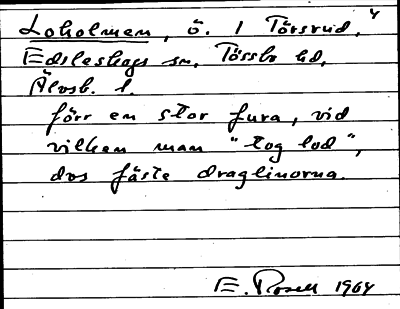 Loholmen, ö. i Törsrud, 4
Edsleskogs sn, Tössbo hd,
Älvsb. l.
förr en stor fura, vid
vilken man "tog lod",
dvs fäste draglinorna.
E. Rosell 1964